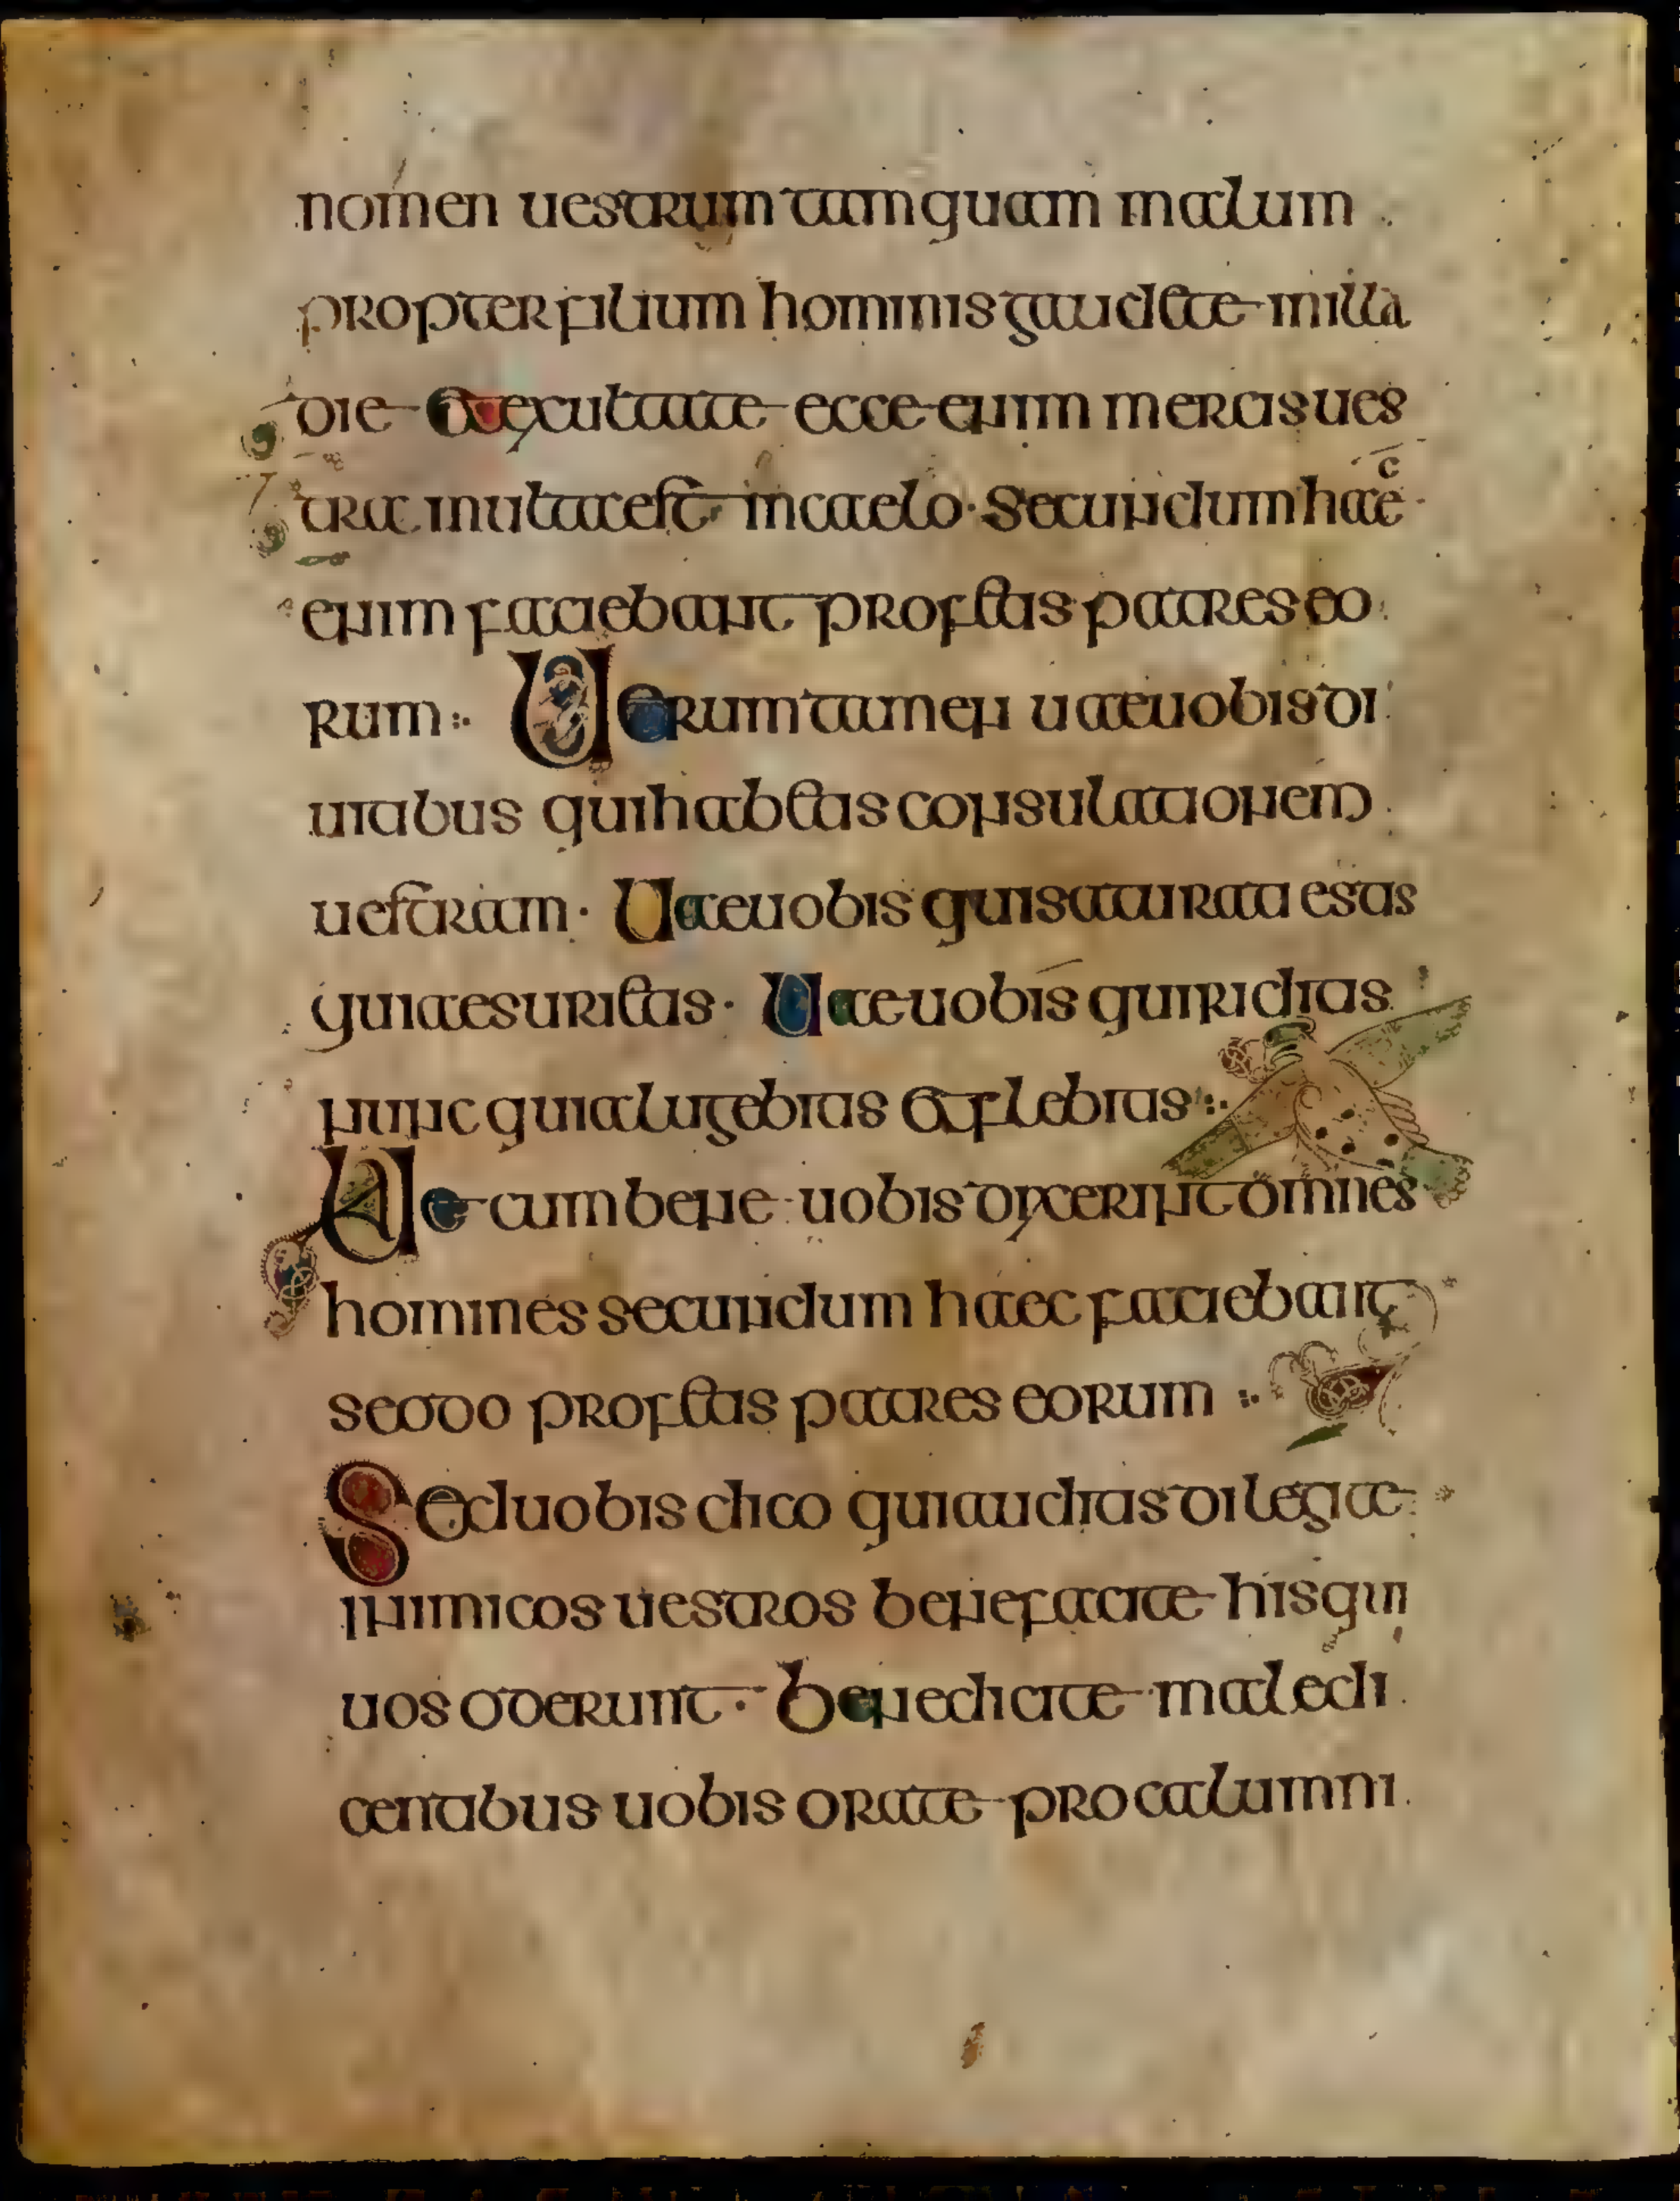 nomen uestrum tamquam malum
propter filium hominis gaudete in illa
die et exultate ecce enim mercis ues
tra in ulta est in caelo · Secundum haec
enim faciebant profetis patres eo
rum :· Uerum tamen uae uobis di
uitibus qui habetis consulationem
uestram · Uae uobis qui saturati estis
qui aesurietis · Uae uobis qui riditis
nunc quia lugebitis et flebitis :·
Uae cum bene uobis dixerint omnes
homines secundum haec faciebant
seodo profetis patres eorum :·
Sed uobis dico qui auditis dilegite
inimicos uestros benefacite his qui
uos oderunt · benedicite maledi
centibus uobis orate pro calumni